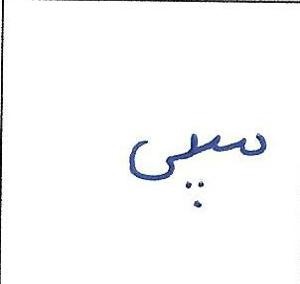 سپی